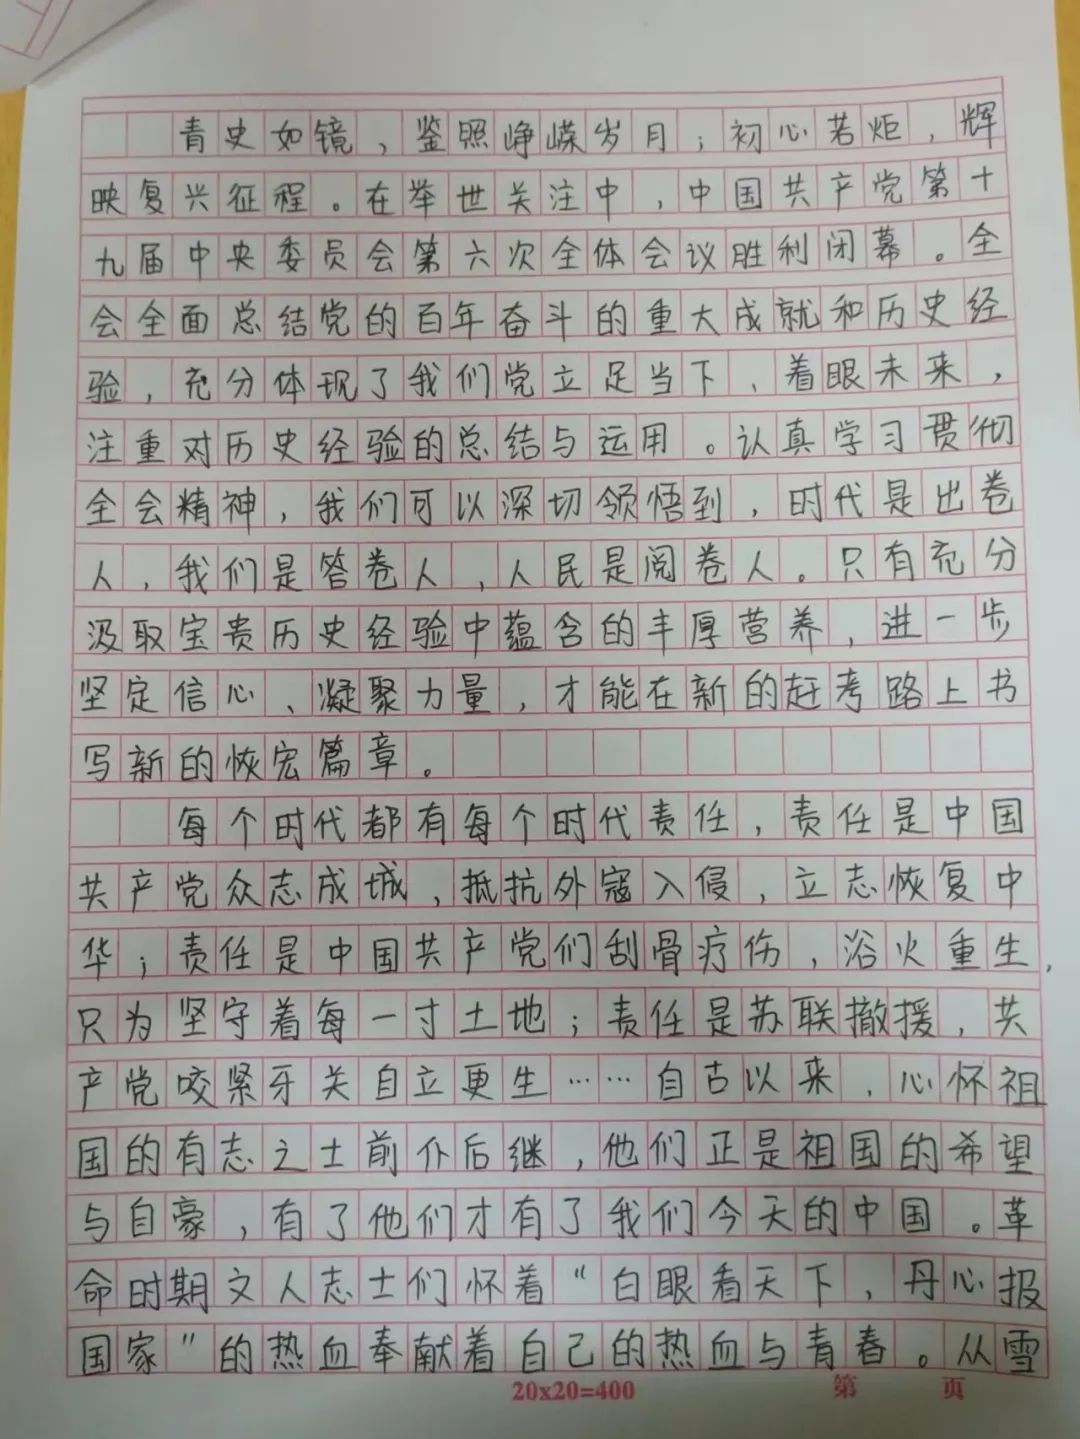 青史如镜，鉴照峥嵘岁月；初心若炬，辉
映复兴征程。在举世关注中，中国共产党第十
九届中央委员会第六次全体会议胜利闭幕。全
会全面总结党的百年奋斗的重大成就和历史经
验，充分体现了我们党立足当下、着眼未来，
注重对历史经验的总结与运用。认真学习贯彻
全会精神，我们可以深切领悟到，时代是出卷
人，我们是答卷人，人民是阅卷人。只有充分
汲取宝贵历史经验中蕴含的丰厚营养，进一步
坚定信心、凝聚力量，才能在新的赶考路上书
写新的恢宏篇章。
每个时代都有每个时代责任，责任是中国
共产党众志成城，抵抗外寇入侵，立志恢复中
华；责任是中国共产党们刮骨疗伤，浴火重生，
只为坚守着每一寸土地；责任是苏联撤援，共
产党咬紧牙关自立更生……自古以来，心怀祖
国的有志之士前仆后继，他们正是祖国的希望
与自豪，有了他们才有了我们今天的中国。革
命时期文人志士们怀着“白眼看天下，丹心报
国家”的热血奉献着自己的热血与青春。从雪
20x20=400 第 页